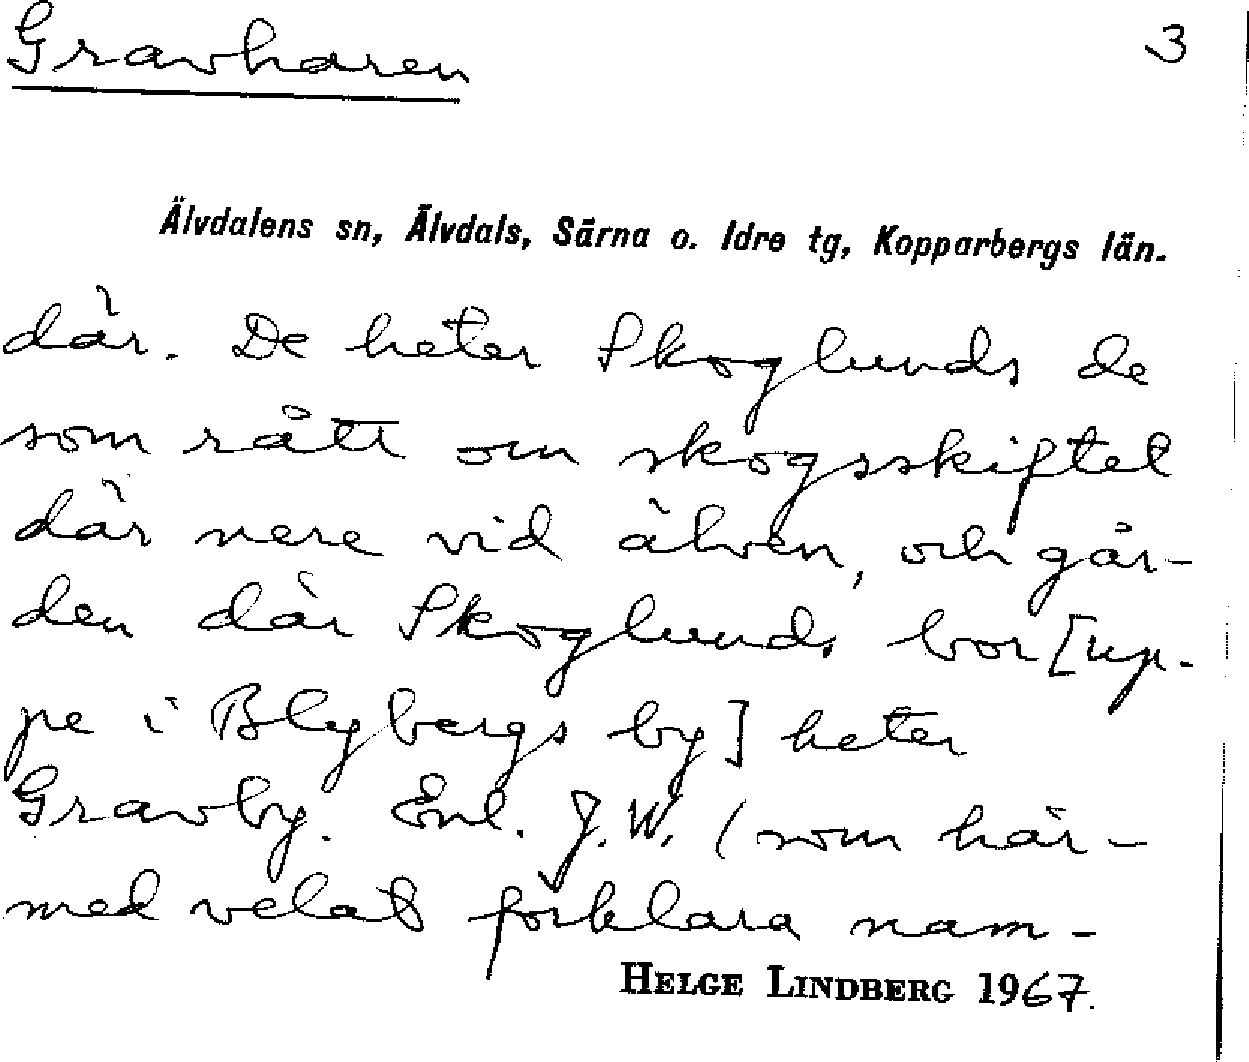 Gravharen 3
Älvdalens sn, Älvdals, Särna o. Idre tg, Kopparbergs län.
där. De heter Skoglunds de
som rått om skogsskiftet
där nere vid älven, och går-
den där Skoglunds bor [up-
pe i Blybergs by] heter
Gravby. Enl. J.W. (som här-
med velat förklara nam-
HELGE LINDBERG 1967.